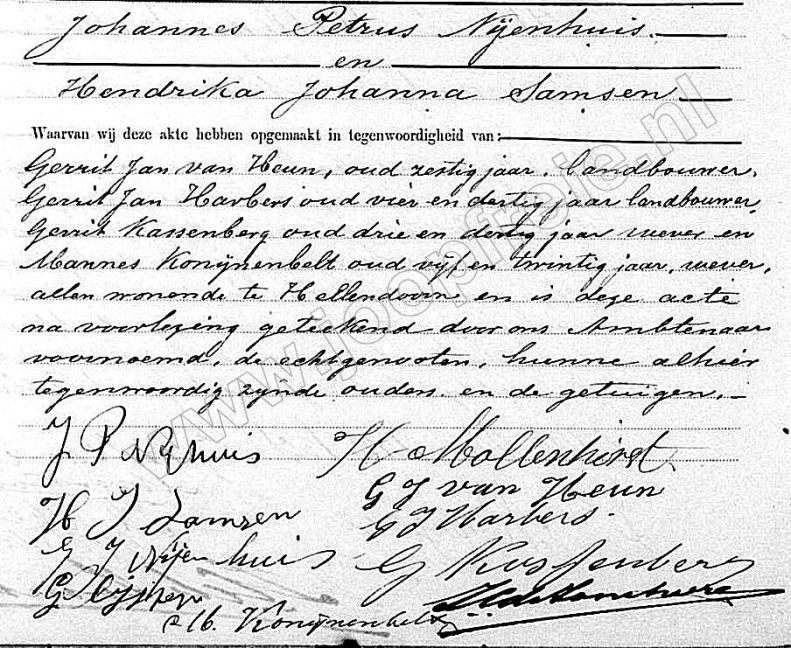 Johannes Petrus Nijenhuis.
en
Hendrika Johanna Samsen
Waarvan wij deze akte hebben opgemaakt in tegenwoordigheid van:
Gerrit Jan van Heun, oud zestig jaar, landbouwer,
Gerrit Jan Harbers oud vier en dertig jaar landbouwer,
Gerrit Kassenberg oud drie en dertig jaar wever en
Mannes Konijnenbelt oud vijf en twintig jaar, wever,
allen wonende te Hellendoorn en is deze acte
na voorlezing geteekend door ons Ambtenaar
voornoemd, de echtgenooten, hunne alhier
tegenwoordig zijnde ouders en de getuigen.
J P Nijhuis
H Mollenhorst
G J van Heun
H J Samsen
G J Harbers.
G J Nijenhuis
G Kassenberg
G
M. Konijnenbelt
www.joopfreie.nl